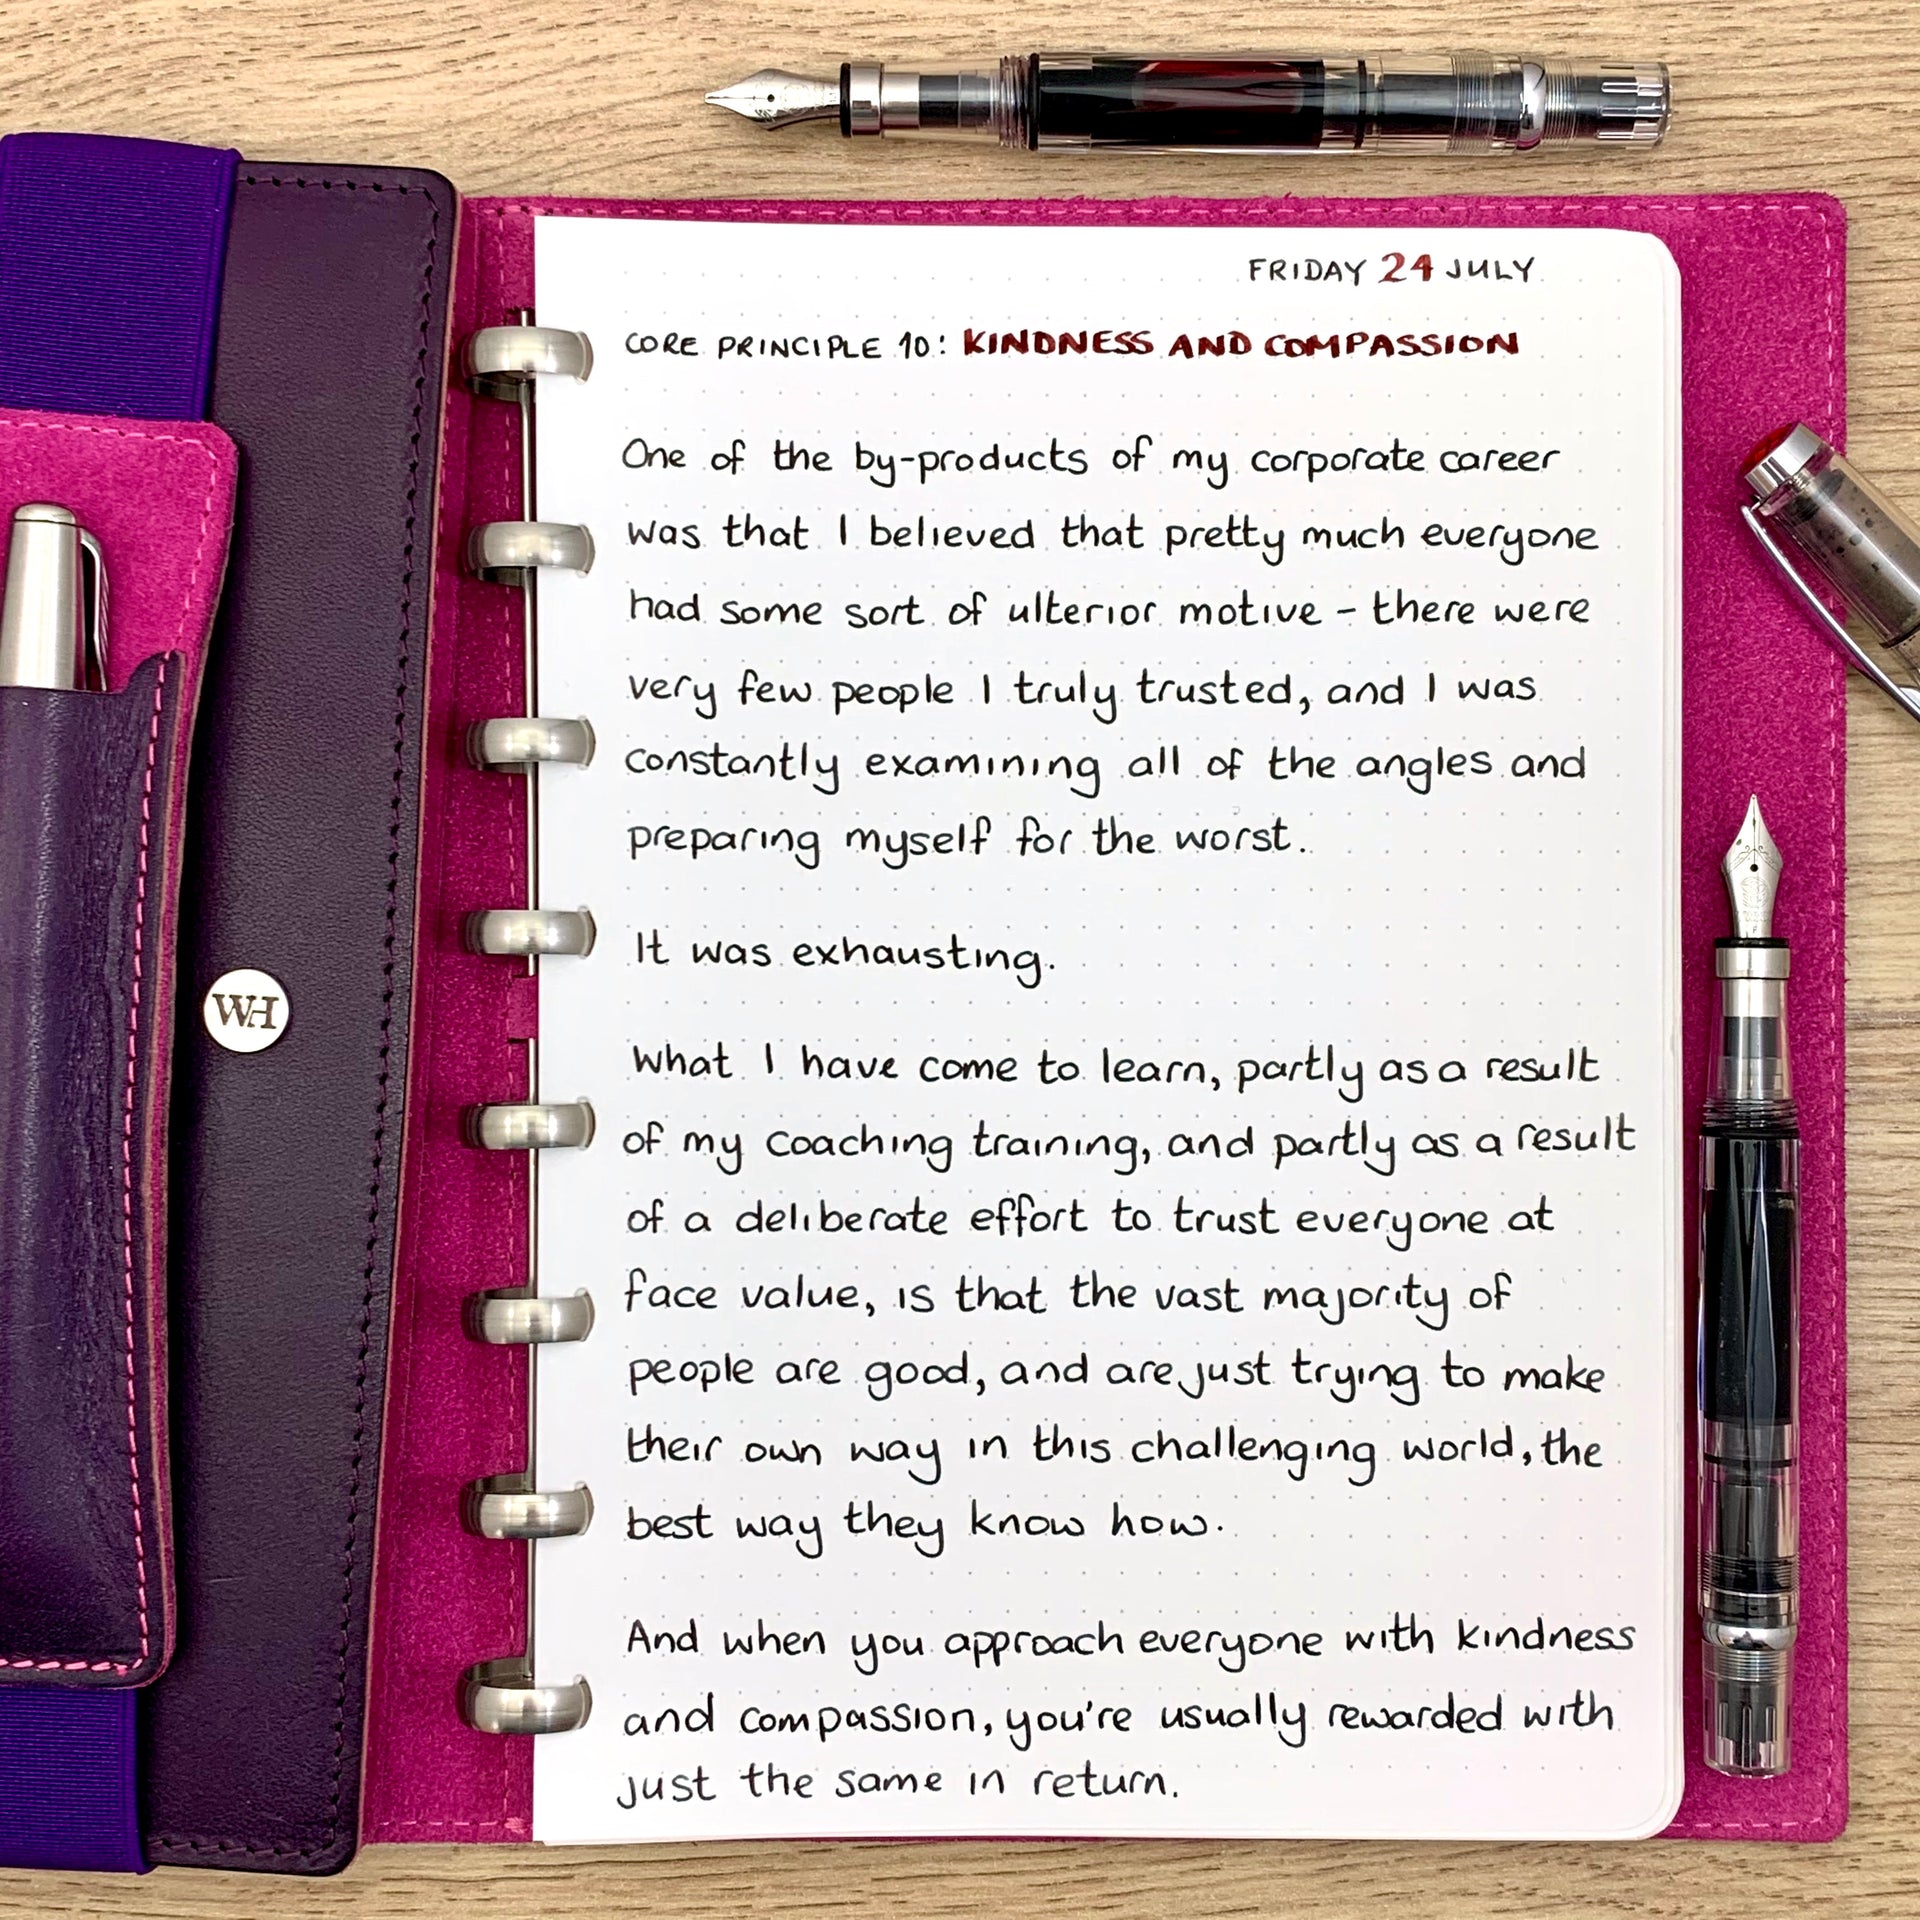 FRIDAY 24 JULY
CORE PRINCIPLE 10: KINDNESS AND COMPASSION
One of the by-products of my corporate career
was that I believed that pretty much everyone
had some sort of ulterior motive - there were
very few people I truly trusted, and I was
constantly examining all of the angles and
preparing myself for the worst.
It was exhausting.
What I have come to learn, partly as a result
of my coaching training, and partly as a result
of a deliberate effort to trust everyone at
face value, is that the vast majority of
people are good, and are just trying to make
their own way in this challenging world, the
best way they know how.
And when you approach everyone with kindness
and compassion, you're usually rewarded with
just the same in return.
WH